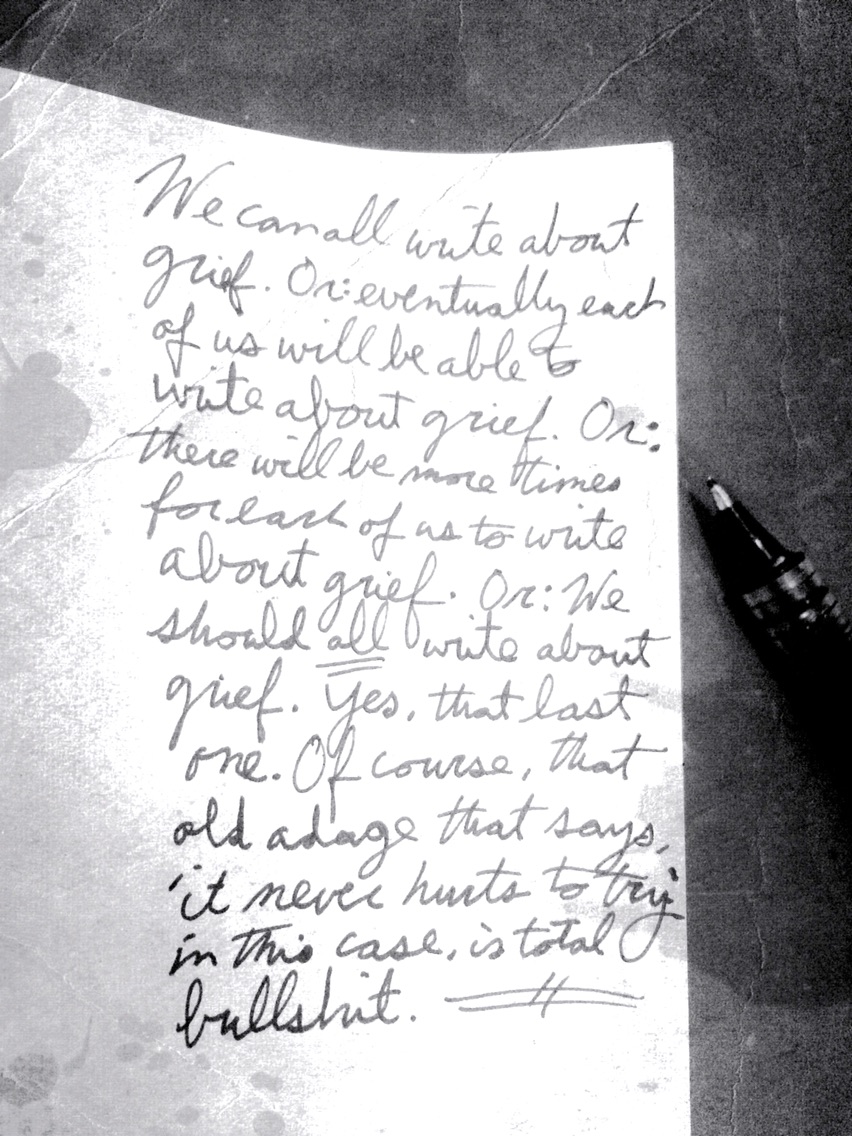 We can all write about
grief. Or: eventually each
of us will be able to
write about grief. Or:
there will be more times
for each of us to write
about grief. Or: We
should all write about
grief. Yes, that last
one. Of course, that
old adage that says,
'it never hurts to try'
in this case, is total
bullshit.